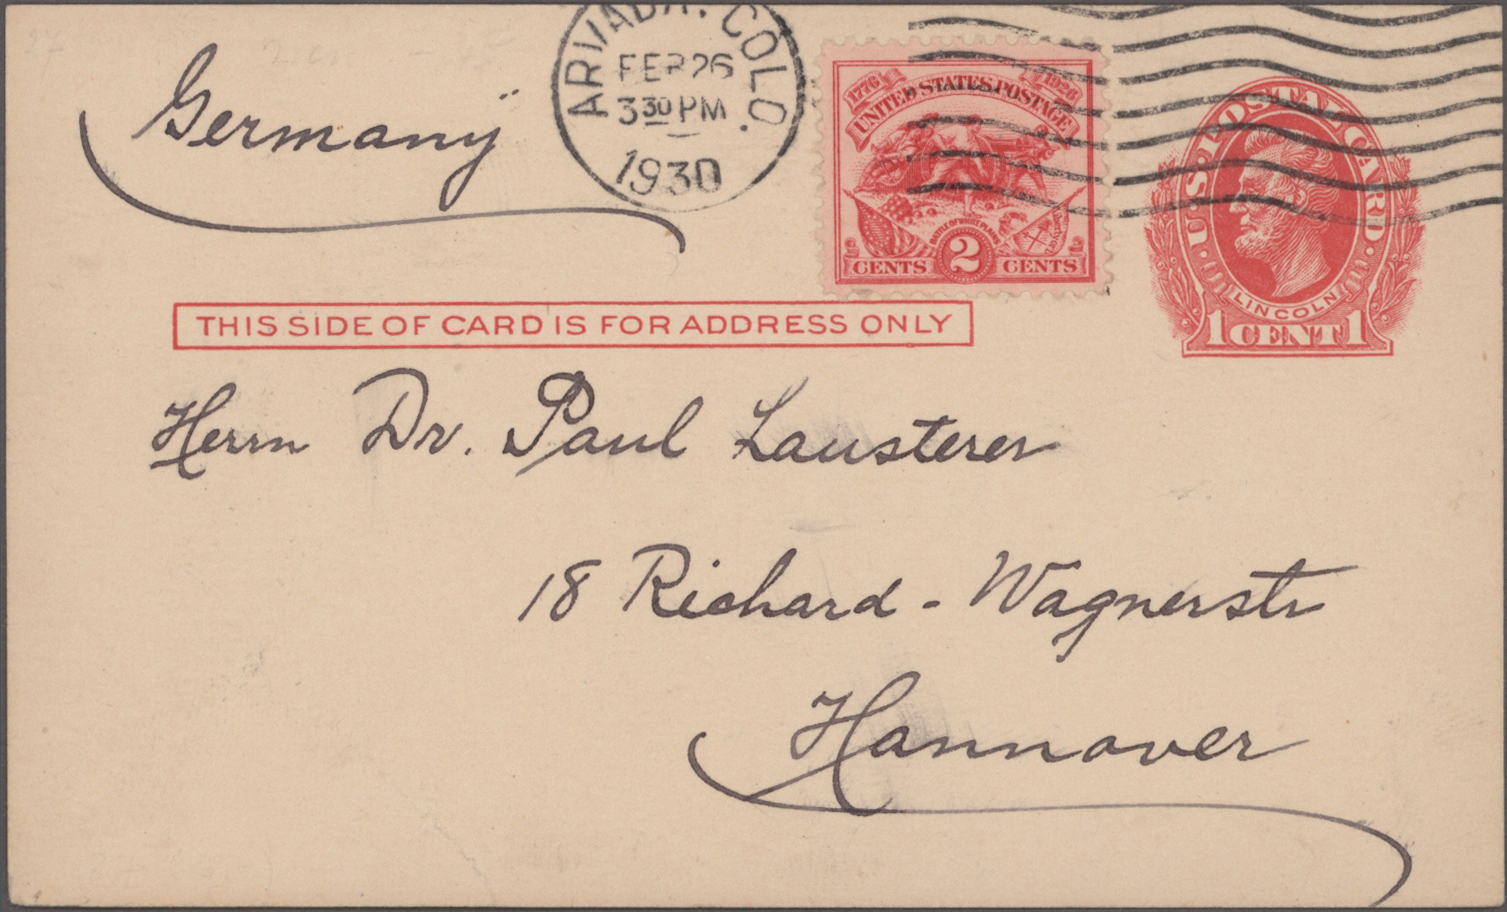 Germany
ARVADA. COLO.
FEB 26
3 30 PM
1930
1776 1926
UNITED STATES POSTAGE
BATTLE OF WHITE PLAINS
CENTS 2 CENTS
U.S. POSTAL CARD
LINCOLN
1 CENT 1
THIS SIDE OF CARD IS FOR ADDRESS ONLY
Herrn Dr. Paul Lausterer
18 Richard - Wagnerstr
Hannover